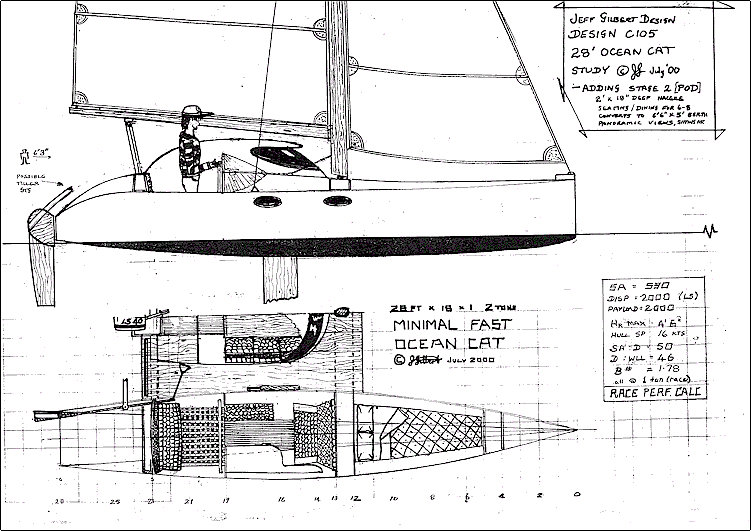 JEFF GILBERT DESIGN
DESIGN C105
28' OCEAN CAT
STUDY © JG July '00
- ADDING STAGE 2 [POD]
2' x 18" DEEP NACELLE
SEATING / DINING FOR 6-8
CONVERTS TO 6'6" x 5' BERTH
PANORAMIC VIEWS,
6'3"
POSSIBLE
TILLER
SYS
28FT x 18 x 1 2 TONS
MINIMAL FAST
OCEAN CAT
© JULY 2000
SA = 550
DISP = 2000 (LS)
PAYLOAD = 2000
HR MAX
HULL SP 16 KTS
SA:D = 50
D:WLL = 46
B# = 1.78
all @ 1 ton (race)
RACE PERF. CALC
25
21
19
16
14
13
12
10
8
6
4
2
0